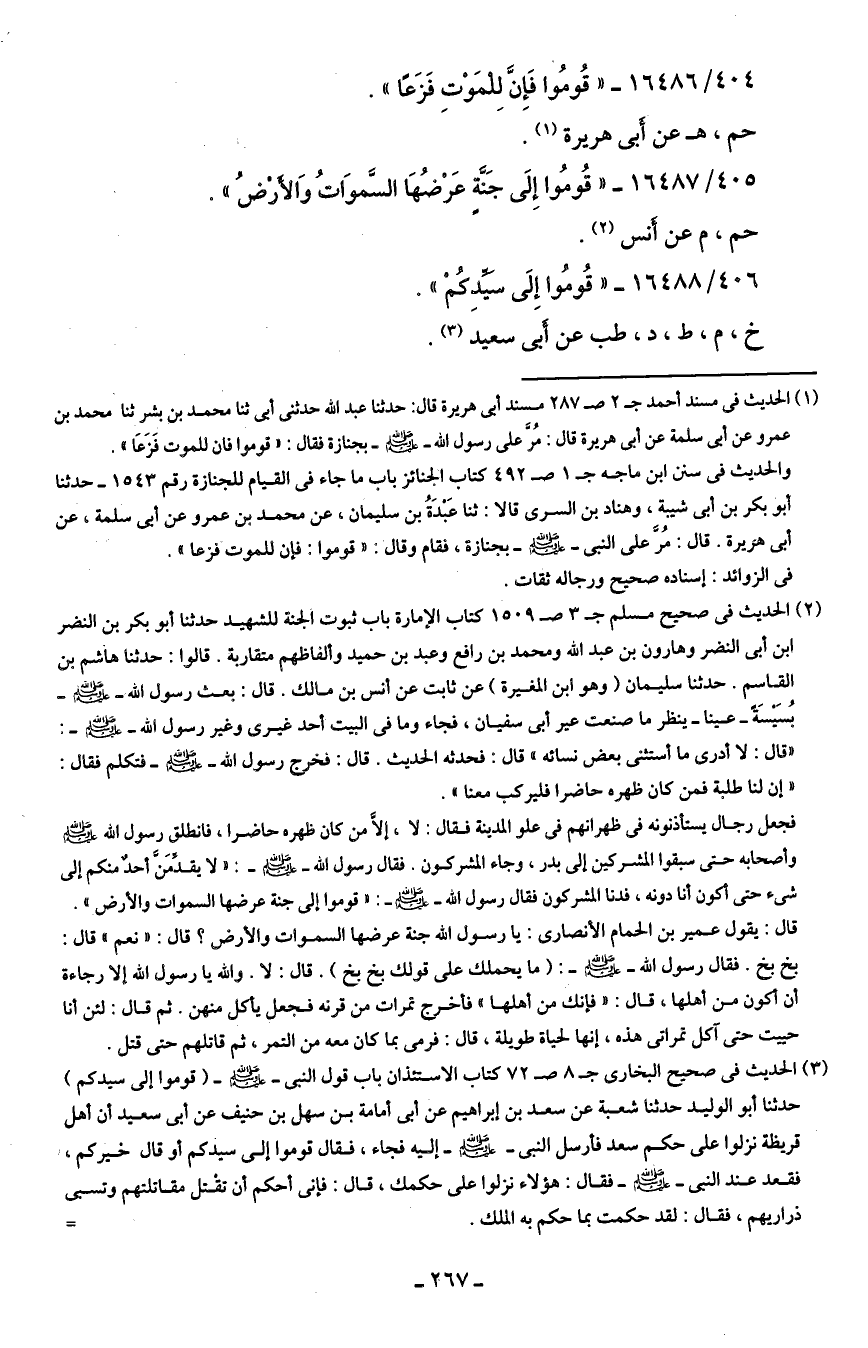 ١٦٤٨٦/٤٠٤ ـ « قُومُوا فَإِنَّ لِلْمَوْتِ فَزَعًا » .
حم ، هـ عن أَبى هريرة (١) .
١٦٤٨٧/٤٠٥ ـ « قُومُوا إِلَى جَنَّةٍ عَرْضُهَا السَّموَاتُ وَالأَرْضُ » .
حم ، م عن أَنس (٢) .
١٦٤٨٨/٤٠٦ ـ « قُومُوا إِلَى سَيِّدِكُمْ » .
خ ، م ، ط ، د ، طب عن أَبى سعيد (٣) .
(١) الحديث فى مسند أحمد جـ ٢ صـ ٢٨٧ مسند أبى هريرة قال: حدثنا عبد الله حدثنى أبى ثنا محمد بن بشر ثنا محمد بن
عمرو عن أبى سلمة عن أبى هريرة قال : مُرَّ على رسول الله ـ ﷺ ـ بجنازة فقال : « قوموا فان للموت فَزَعَا » .
والحديث فى سنن ابن ماجه جـ ١ صـ ٤٩٢ كتاب الجنائز باب ما جاء فى القيام للجنازة رقم ١٥٤٣ ـ حدثنا
أبو بكر بن أبى شيبة ، وهناد بن السرى قالا : ثنا عَبْدَةُ بن سليمان ، عن محمد بن عمرو عن أبى سلمة ، عن
أبى هريرة . قال : مُرَّ على النبى ـ ﷺ ـ بجنازة ، فقام وقال : « قوموا : فإن للموت فزعا » .
فى الزوائد : إسناده صحيح ورجاله ثقات .
(٢) الحديث فى صحيح مسلم جـ ٣ صـ ١٥٠٩ كتاب الإمارة باب ثبوت الجنة للشهيد حدثنا أبو بكر بن النضر
ابن أبى النضر وهارون بن عبد الله ومحمد بن رافع وعبد بن حميد وألفاظهم متقاربة . قالوا : حدثنا هاشم بن
القاسم . حدثنا سليمان ( وهو ابن المغيرة ) عن ثابت عن أنس بن مالك . قال : بعث رسول الله ـ ﷺ ـ
بُسَيْسَةَ ـ عينا ـ ينظر ما صنعت عير أبى سفيان ، فجاء وما فى البيت أحد غيرى وغير رسول الله ـ ﷺ ـ :
«قال : لا أدرى ما أستثنى بعض نسائه » قال : فحدثه الحديث . قال : فخرج رسول الله ـ ﷺ ـ فتكلم فقال :
« إن لنا طلبة فمن كان ظهره حاضرا فليركب معنا » .
فجعل رجال يستأذنونه فى ظهرانهم فى علو المدينة فقال : لا ، إلاَّ من كان ظهره حاضرا ، فانطلق رسول الله ﷺ
وأصحابه حتى سبقوا المشركين إلى بدر ، وجاء المشركون . فقال رسول الله ـ ﷺ ـ : « لا يقدِّمَنَّ أحدٌ منكم إلى
شىء حتى أكون أنا دونه ، فدنا المشركون فقال رسول الله ـ ﷺ ـ : « قوموا إلى جنة عرضها السموات والأرض » .
قال : يقول عمير بن الحمام الأنصارى : يا رسول الله جنة عرضها السموات والأرض ؟ قال : « نعم » قال :
بخ بخ . فقال رسول الله ـ ﷺ ـ : ( ما يحملك على قولك بخ بخ ) . قال : لا . والله يا رسول الله إلا رجاءة
أن أكون من أهلها ، قال : « فإنك من أهلها » فأخرج تمرات من قرنه فجعل يأكل منهن . ثم قال : لئن أنا
حييت حتى آكل تمراتى هذه ، إنها لحياة طويلة ، قال : فرمى بما كان معه من التمر ، ثم قاتلهم حتى قتل .
(٣) الحديث فى صحيح البخارى جـ ٨ صـ ٧٢ كتاب الاستئذان باب قول النبى ـ ﷺ ـ ( قوموا إلى سيدكم )
حدثنا أبو الوليد حدثنا شعبة عن سعد بن إبراهيم عن أبى أمامة بن سهل بن حنيف عن أبى سعيد أن أهل
قريظة نزلوا على حكم سعد فأرسل النبى ـ ﷺ ـ إليه فجاء ، فقال قوموا إلى سيدكم أو قال خيركم ،
فقعد عند النبى ـ ﷺ ـ فقال : هؤلاء نزلوا على حكمك ، قال : فإنى أحكم أن تقْتل مقاتلتهم وتسبى
ذراريهم ، فقال : لقد حكمت بما حكم به الملك . =
ـ ٢٦٧ ـ